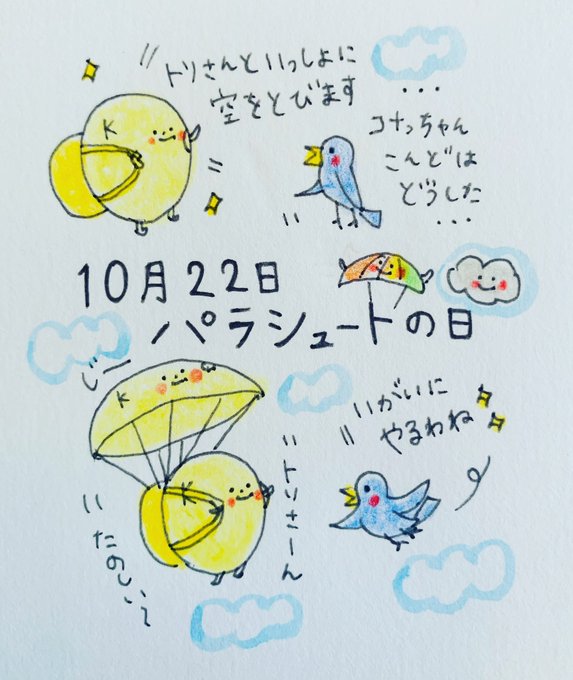 トリさんといっしょに
空をとびます
K
・・・
コナっちゃん
こんどは
どうした
・・・
10月22日
パラシュートの日
じー
K
K
トリさーん
たのしい〜
いがいに
やるわね